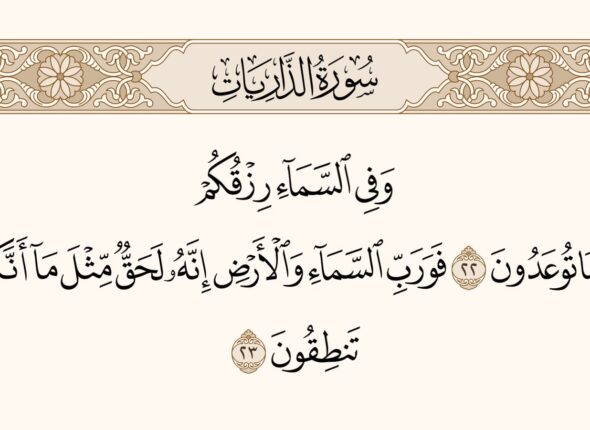 سُورَةُ الذَّارِيَاتِ
وَفِي ٱلسَّمَآءِ رِزۡقُكُمۡ
تُوعَدُونَ ٢٢ فَوَرَبِّ ٱلسَّمَآءِ وَٱلۡأَرۡضِ إِنَّهُۥ لَحَقّٞ مِّثۡلَ مَآ
تَنطِقُونَ ٢٣